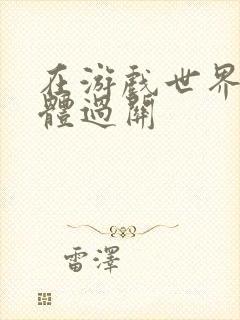 在游戲世界
體過關
雷澤